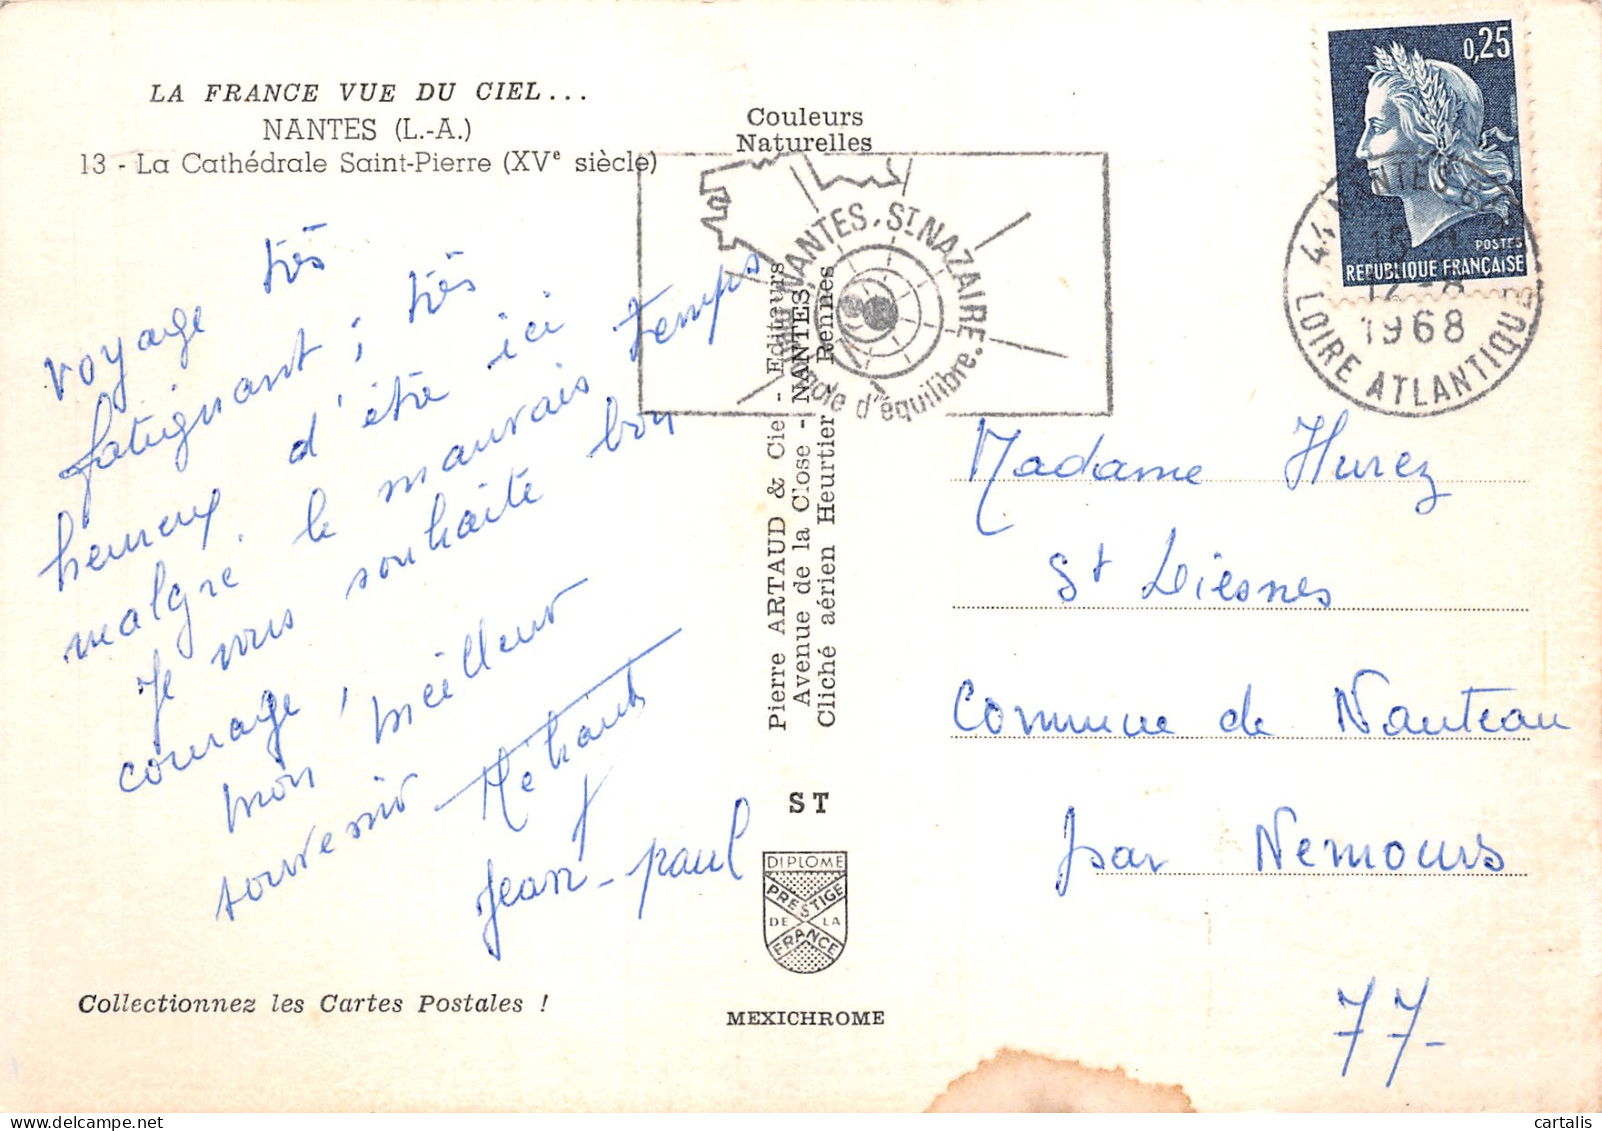 LA FRANCE VUE DU CIEL...
NANTES (L.-A.)
13 - La Cathédrale Saint-Pierre (XVe siècle)
voyage très
fatiguant ; très
heureux d'être ici
malgré le mauvais temps
Je vous souhaite bon
courage, meilleur
mon
souvenir
Jean-paul
Collectionnez les Cartes Postales !
Couleurs
Naturelles
NANTES. ST NAZAIRE.
d'équilibre.
Pierre ARTAUD & Cie - Editeurs
Avenue de la Close - NANTES
Cliché aérien Heurtier - Rennes
ST
DIPLOME
PRESTIGE
DE LA
FRANCE
MEXICHROME
0,25
POSTES
REPUBLIQUE FRANÇAISE
44 NANTES
1968
LOIRE ATLANTIQUE
Madame Hurez
St Liesnes
Commune de Nanteau
par Nemours
77-
cartalis